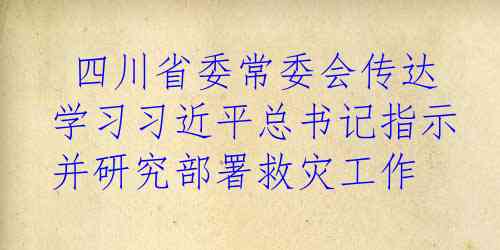 四川省委常委会传达
学习习近平总书记指示
并研究部署救灾工作